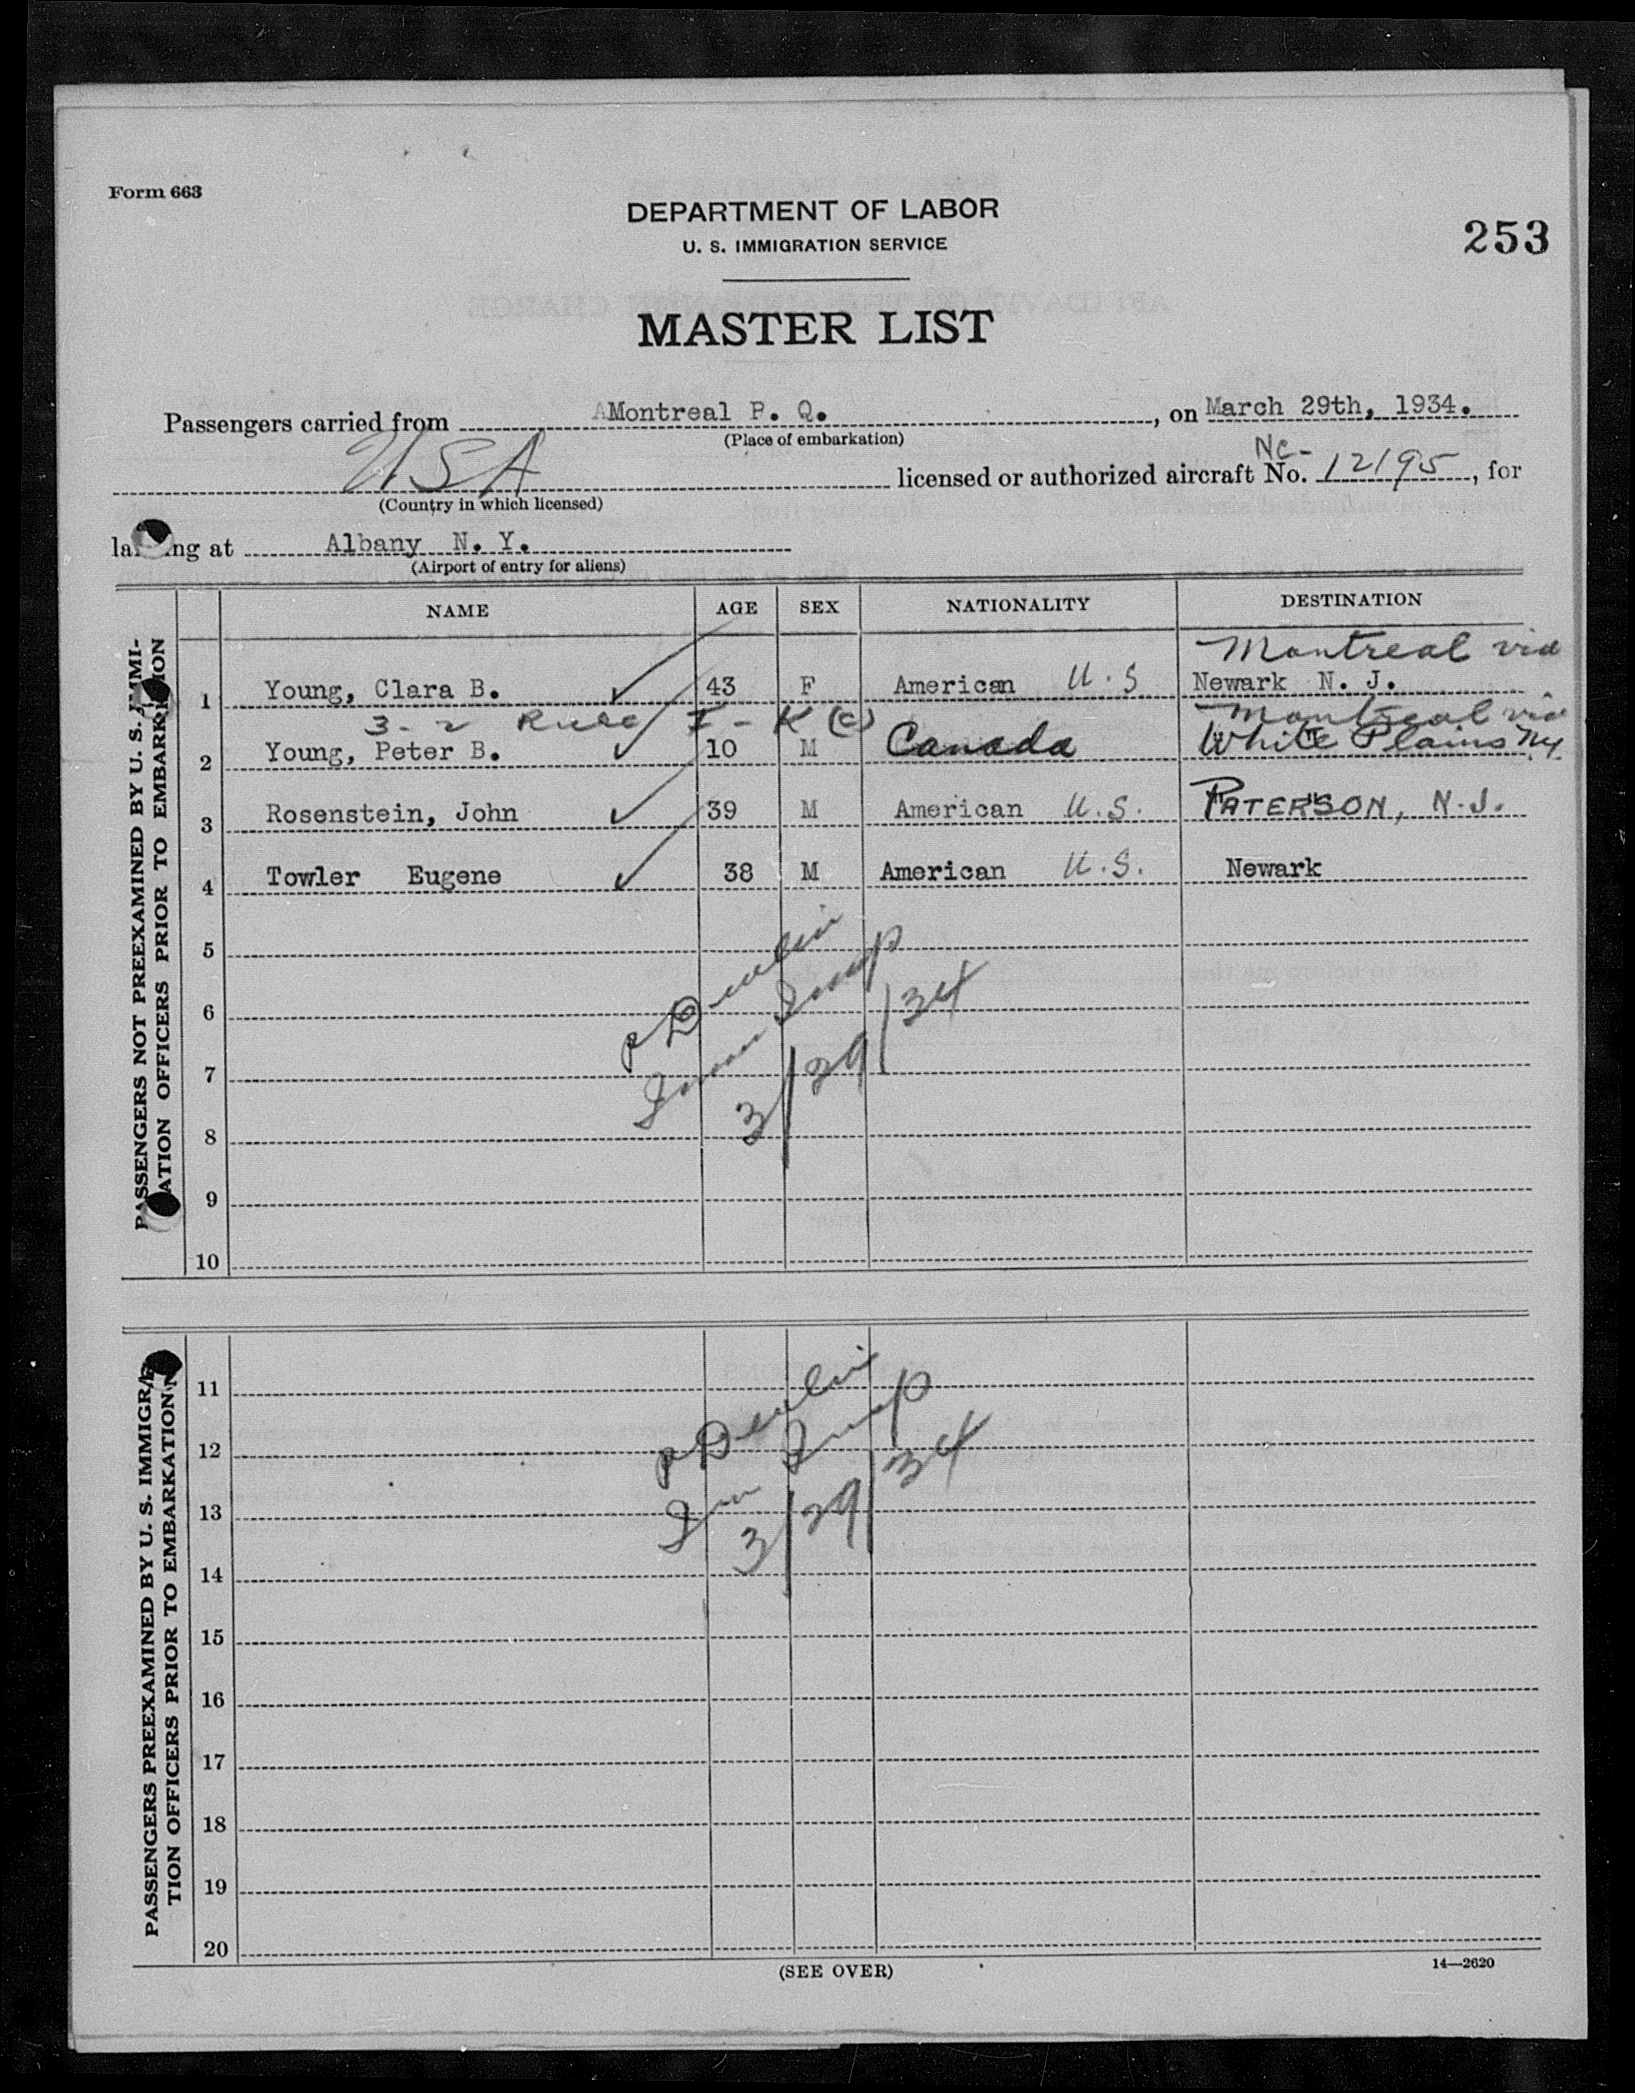 Form 663
DEPARTMENT OF LABOR
U. S. IMMIGRATION SERVICE
253
MASTER LIST
Passengers carried from Montreal P. Q., on March 29th, 1934.
(Place of embarkation)
NC-
USA licensed or authorized aircraft No. 12195, for
(Country in which licensed)
landing at Albany N. Y.
(Airport of entry for aliens)
NAME AGE SEX NATIONALITY DESTINATION
PASSENGERS NOT PREEXAMINED BY U. S. IMMI-
ATION OFFICERS PRIOR TO EMBARKATION
Montreal via
1 Young, Clara B. 43 F American U.S Newark N. J.
3-2 Rule I-K(c) Montreal via
2 Young, Peter B. 10 M Canada White Plains NY.
3 Rosenstein, John 39 M American U.S. PATERSON, N.J.
4 Towler Eugene 38 M American U.S. Newark
5
6
7
8
9
10
P Devlin
Imm Insp
3/29/34
PASSENGERS PREEXAMINED BY U. S. IMMIGRA-
TION OFFICERS PRIOR TO EMBARKATION
11
12
13
14
15
16
17
18
19
20
P Devlin
Imm Insp
3/29/34
(SEE OVER)
14—2620